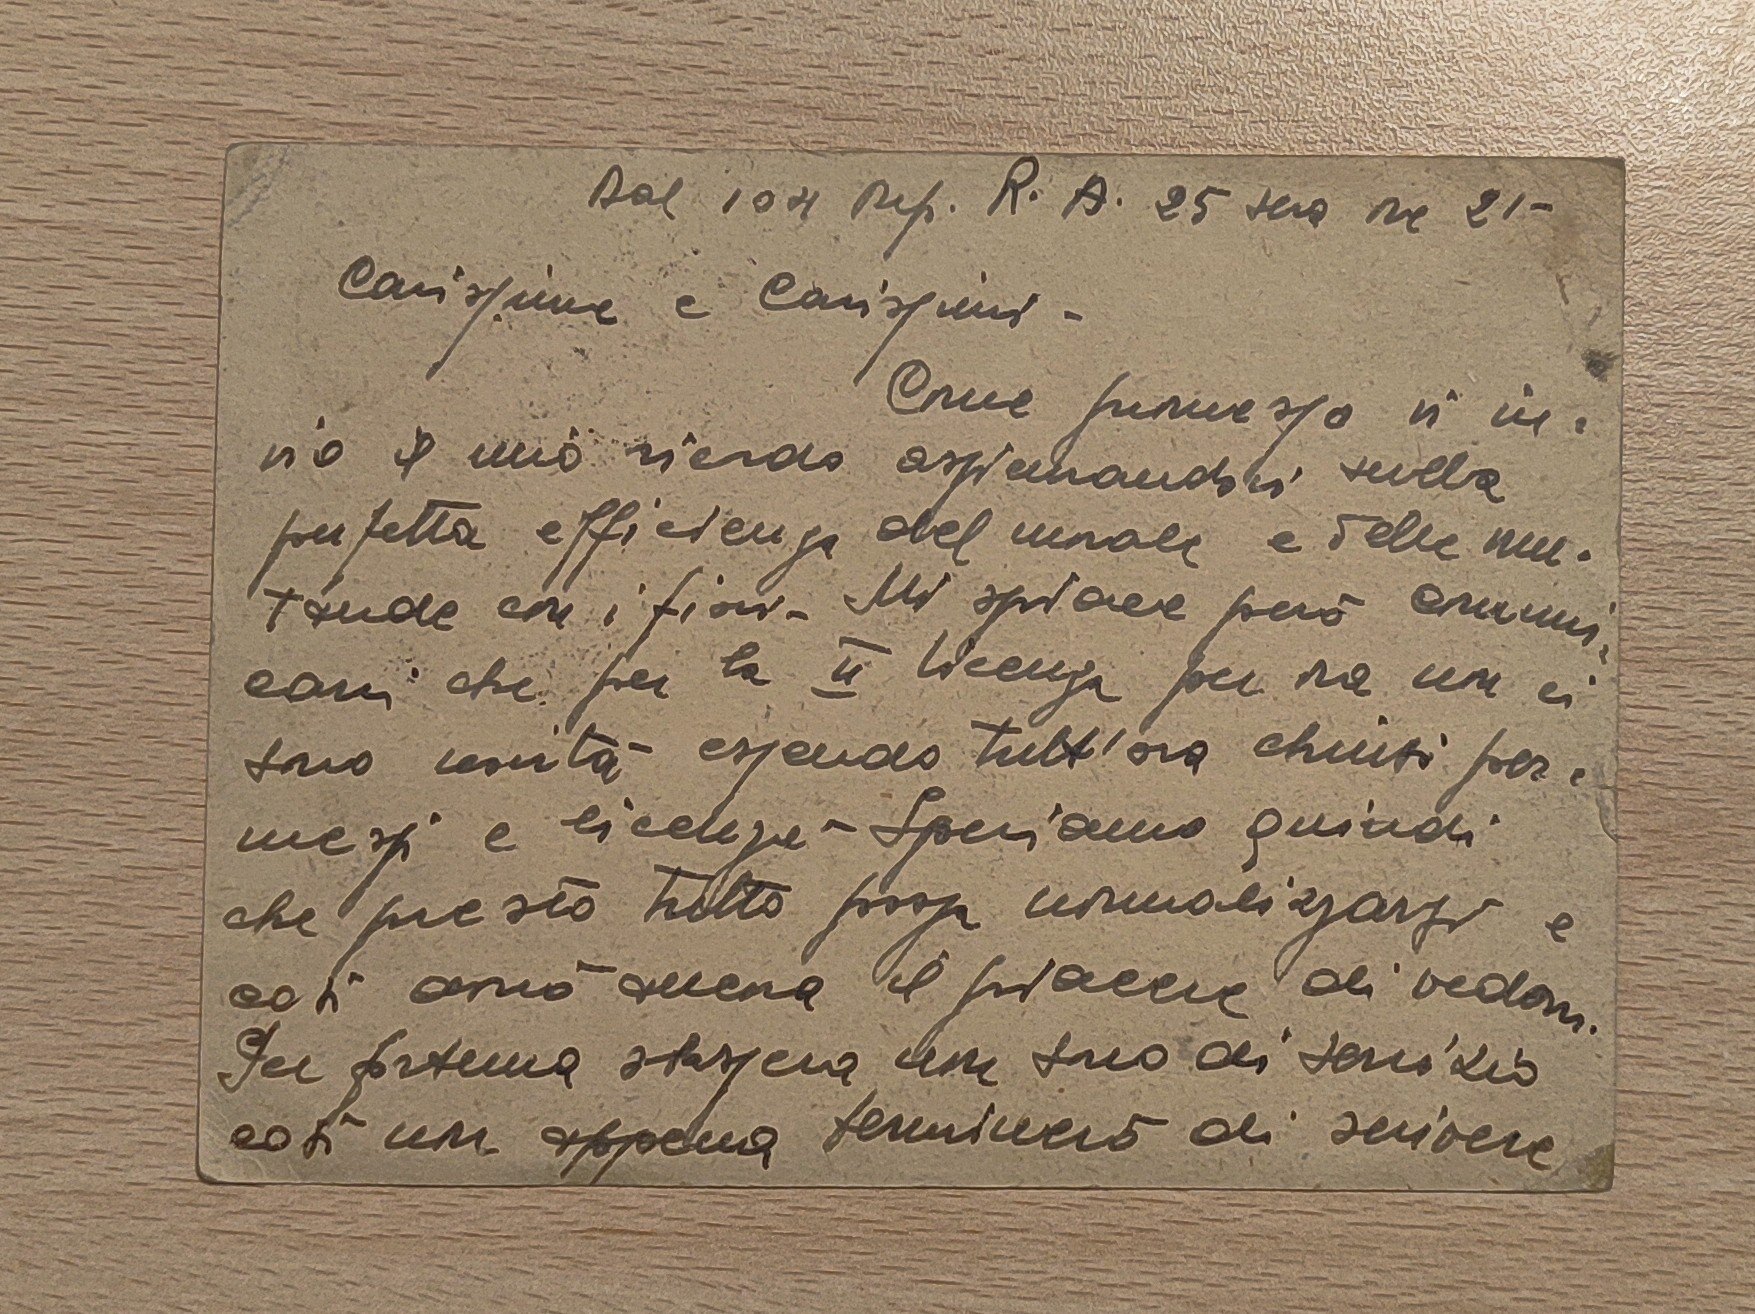 Dal 104 Rep. R. A. 25 sera ore 21-
Carissime e Carissimi -
Come promesso vi in-
vio il mio ricordo assicurandovi sulla
perfetta efficienza del morale e delle mu-
tande con i fiori - Mi spiace però comuni-
carvi che per la II licenza per ora non ci
sono novità essendo tutt'ora chiusi per-
messi e licenze - Speriamo quindi
che presto tutto possa normalizzarsi e
così avrò ancora il piacere di vedervi.
Per fortuna stassera non sono di servizio
così non appena terminerò di scrivere